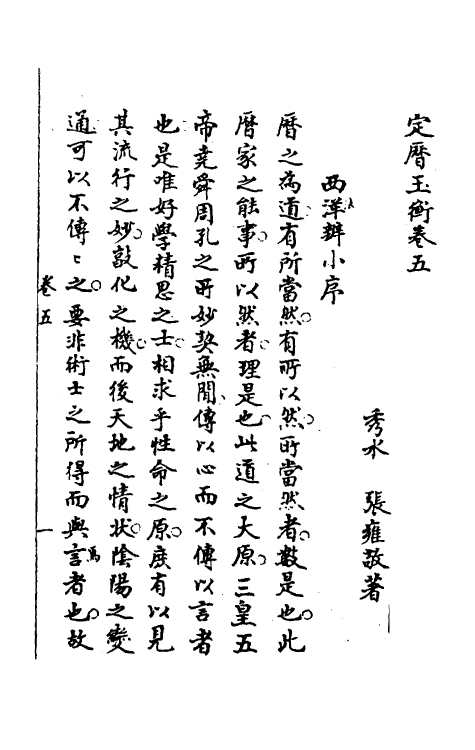 定曆玉衡卷五
秀水　張雍敬著
西洋辯小序
曆之為道有所當然有所以然所當然者數是也此
曆家之能事所以然者理是也此道之大原三皇五
帝堯舜周孔之所妙契無間傳以心而不傳以言者
也是唯好學精思之士相求乎性命之原庶有以見
其流行之妙敦化之機而後天地之情狀陰陽之變
通可以不傳〻之要非術士之所得而與言者也故
卷五
一